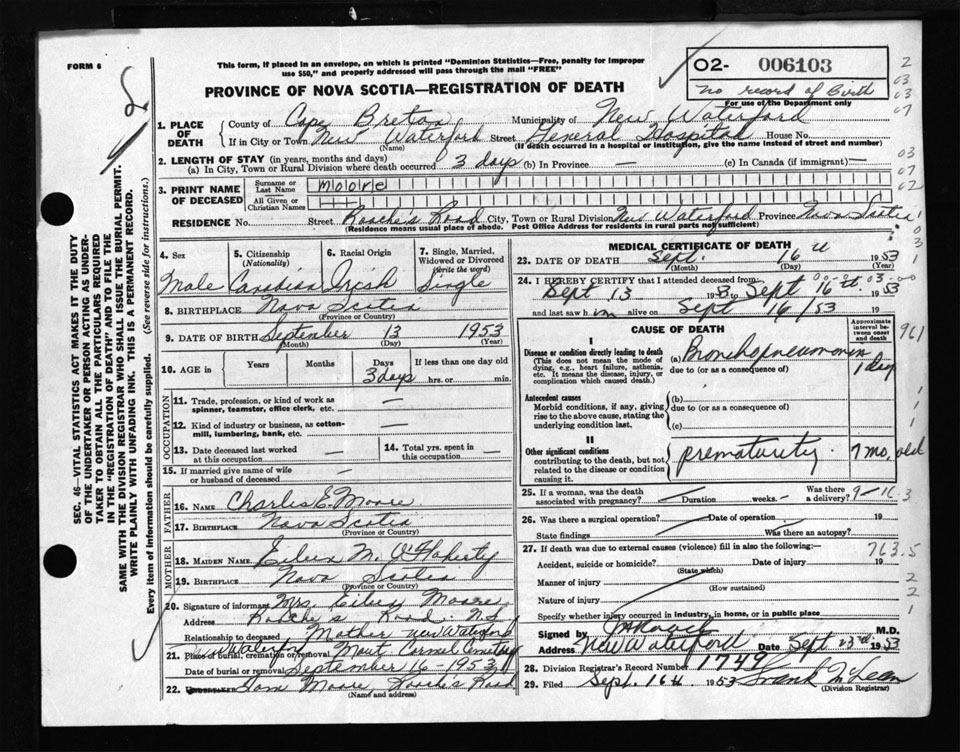 FORM 6
This form, if placed in an envelope, on which is printed "Dominion Statistics—Free, penalty for improper
use $50," and properly addressed will pass through the mail "FREE"
PROVINCE OF NOVA SCOTIA—REGISTRATION OF DEATH
O2- 006103
no record of Birth
For use of the Department only
1. PLACE OF DEATH
County of Cape Breton Municipality of New Waterford
If in City or Town New Waterford Street General Hospital House No.
(Name) (If death occurred in a hospital or institution, give the name instead of street and number)
2. LENGTH OF STAY (in years, months and days)
(a) In City, Town or Rural Division where death occurred 3 days (b) In Province — (c) In Canada (if immigrant) —
3. PRINT NAME OF DECEASED
Surname or Last Name Moore
All Given or Christian Names
RESIDENCE No. Street Roache's Road City, Town or Rural Division New Waterford Province Nova Scotia
(Residence means usual place of abode. Post Office Address for residents in rural parts not sufficient)
4. Sex
Male
5. Citizenship (Nationality)
Canadian
6. Racial Origin
Irish
7. Single, Married, Widowed or Divorced (write the word)
Single
8. BIRTHPLACE Nova Scotia
(Province or Country)
9. DATE OF BIRTH September 13 1953
(Month) (Day) (Year)
10. AGE in Years Months Days 3 days If less than one day old hrs. or min.
OCCUPATION
11. Trade, profession, or kind of work as spinner, teamster, office clerk, etc. —
12. Kind of industry or business, as cotton-mill, lumbering, bank, etc. —
13. Date deceased last worked at this occupation —
14. Total yrs. spent in this occupation —
15. If married give name of wife or husband of deceased —
FATHER
16. NAME Charlis E. Moore
17. BIRTHPLACE Nova Scotia
(Province or Country)
MOTHER
18. MAIDEN NAME Eileen M. O'Flaherty
19. BIRTHPLACE Nova Scotia
(Province or Country)
20. Signature of informant Mrs. Eileen Moore
Address Roache's Road N.S.
Relationship to deceased Mother New Waterford
21. Place of burial, cremation or removal Mount Carmel Cemetery
Date of burial or removal September 16 - 1953
22. Undertaker Tom Moore Roache's Road
(Name and address)
MEDICAL CERTIFICATE OF DEATH
23. DATE OF DEATH Sept. 16 1953
(Month) (Day) (Year)
24. I HEREBY CERTIFY that I attended deceased from:
Sept 13 1953 to Sept 16th 1953
and last saw him alive on Sept 16/53 19
CAUSE OF DEATH
Approximate interval between onset and death
I
Disease or condition directly leading to death
(This does not mean the mode of dying, e.g., heart failure, asthenia, etc. It means the disease, injury, or complication which caused death.)
(a) Bronchopneumonia 1 day
due to (or as a consequence of)
Antecedent causes
Morbid conditions, if any, giving rise to the above cause, stating the underlying condition last.
(b)
due to (or as a consequence of)
(c)
II
Other significant conditions
contributing to the death, but not related to the disease or condition causing it.
prematurity 7 mo. old
25. If a woman, was the death associated with pregnancy? Duration weeks Was there a delivery?
26. Was there a surgical operation? Date of operation 19
State findings Was there an autopsy?
27. If death was due to external causes (violence) fill in also the following:—
Accident, suicide or homicide? Date of injury 19
(State which)
Manner of injury
(How sustained)
Nature of injury
Specify whether injury occurred in industry, in home, or in public place
Signed by M.D.
New Waterford Date Sept 1953
28. Division Registrar's Record Number 1749
29. Filed Sept. 16th 1953 Frank McLean
(Division Registrar)
961
763.5
SEC. 46—VITAL STATISTICS ACT MAKES IT THE DUTY
OF THE UNDERTAKER OR PERSON ACTING AS UNDER-
TAKER TO OBTAIN ALL THE PARTICULARS REQUIRED
IN THE "REGISTRATION OF DEATH" AND TO FILE THE
SAME WITH THE DIVISION REGISTRAR WHO SHALL ISSUE THE BURIAL PERMIT.
WRITE PLAINLY WITH UNFADING INK. THIS IS A PERMANENT RECORD.
Every item of Information should be carefully supplied. (See reverse side for instructions.)